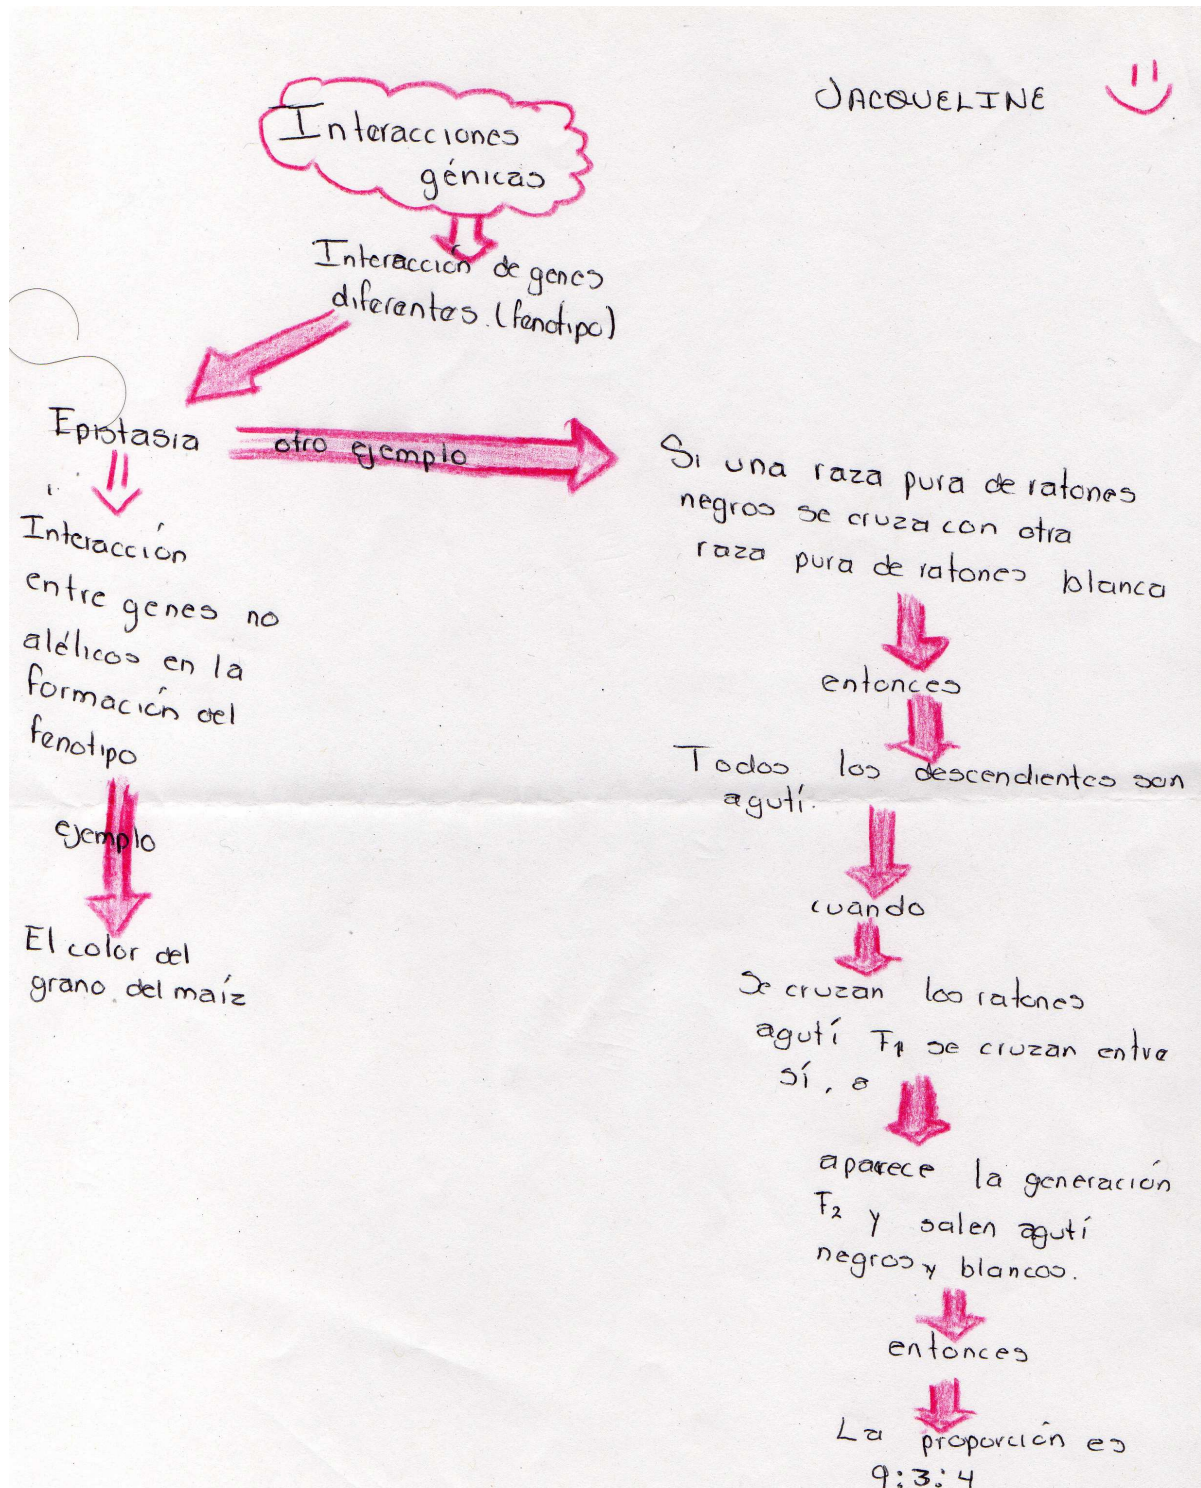 JACQUELINE
Interacciones
génicas
Interacción de genes
diferentes. (fenotipo)
Epistasia
otro ejemplo
Interacción
entre genes no
alélicos en la
formación del
fenotipo
ejemplo
El color del
grano del maíz
Si una raza pura de ratones
negros se cruza con otra
raza pura de ratones blanca
entonces
Todos los descendientes son
agutí.
cuando
Se cruzan los ratones
agutí F1 se cruzan entre
sí,
aparece la generación
F2 y salen agutí
negros y blancos.
entonces
La proporción es
9:3:4